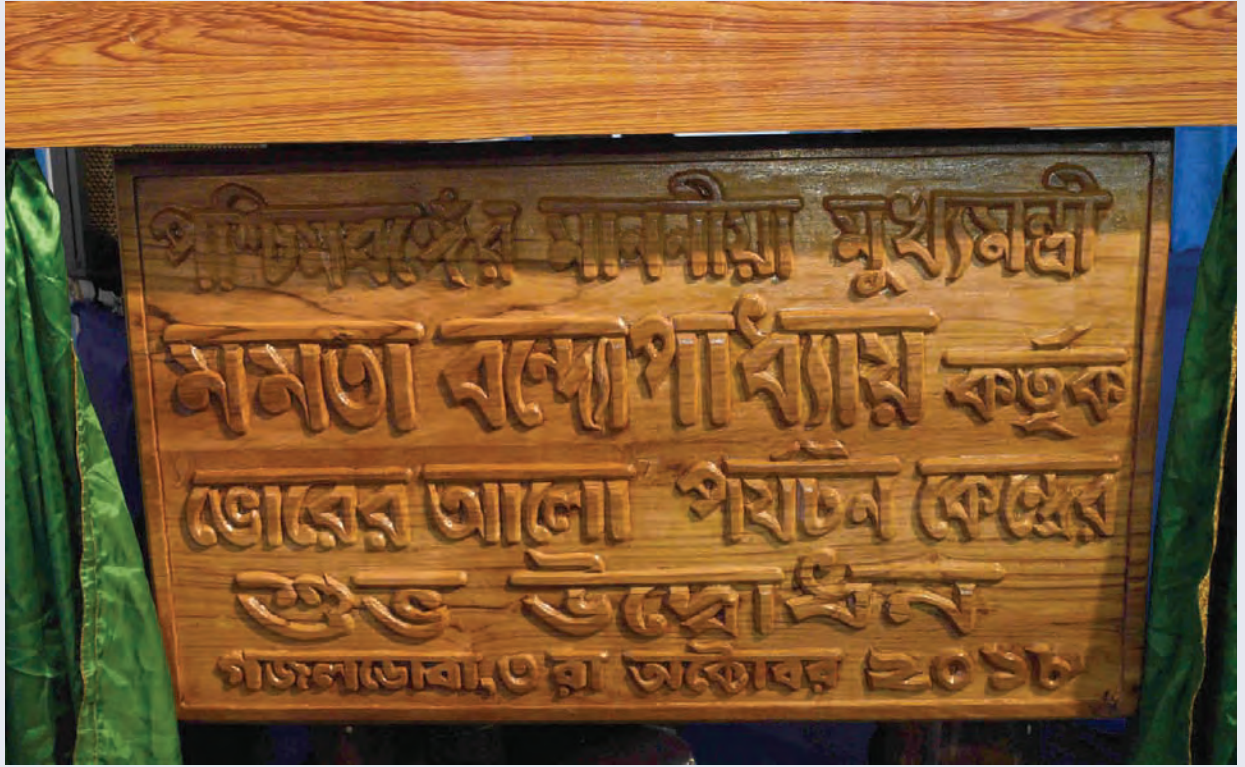 পশ্চিমবঙ্গেঁর মাননীয়া মুখ্যমন্ত্রী
মমতা বন্দ্যোপাধ্যায় কর্তৃক
ভোরের আলো পর্যটন কেন্দ্রের
শুভ উদ্বোধন
গজলডোবা, ৩ রা অক্টোবর ২০১৮